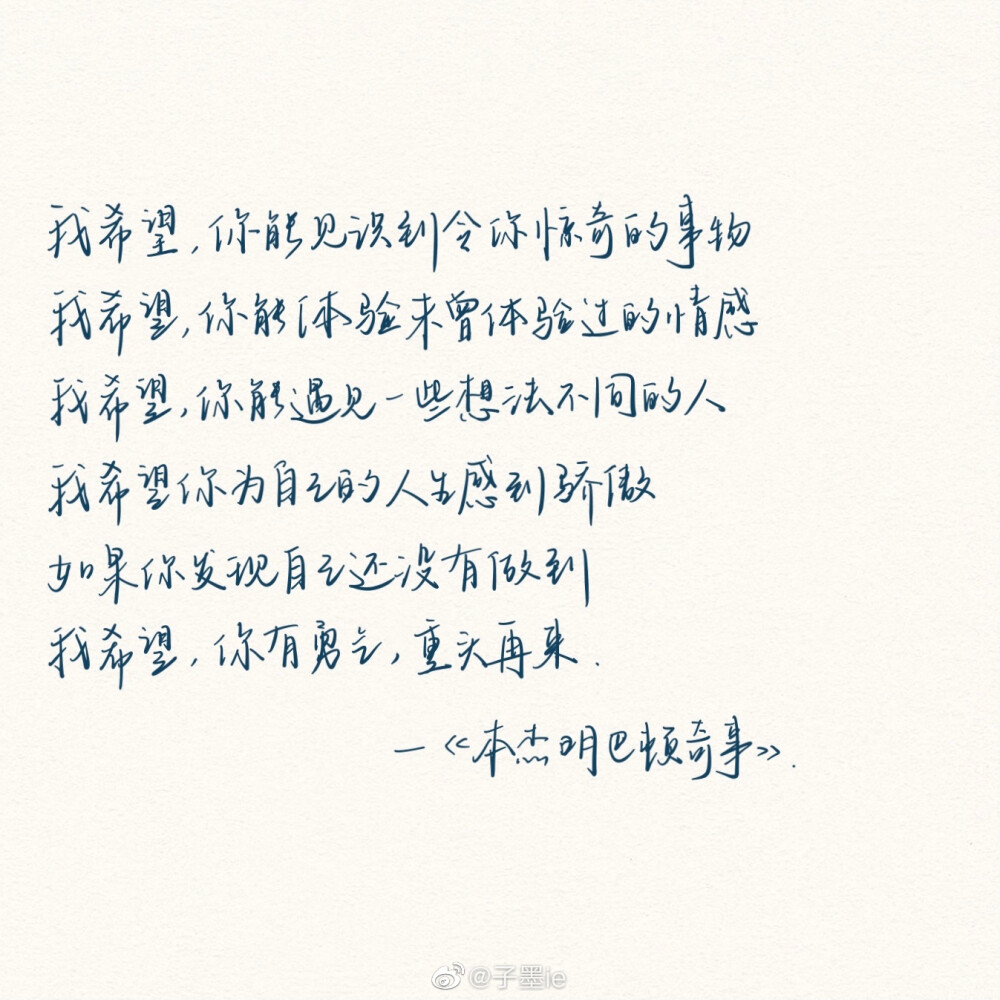 我希望,你能见识到令你惊奇的事物
我希望,你能体验未曾体验过的情感
我希望,你能遇见一些想法不同的人
我希望你为自己的人生感到骄傲
如果你发现自己还没有做到
我希望,你有勇气,重头再来.
—《本杰明巴顿奇事》.
@子墨ie